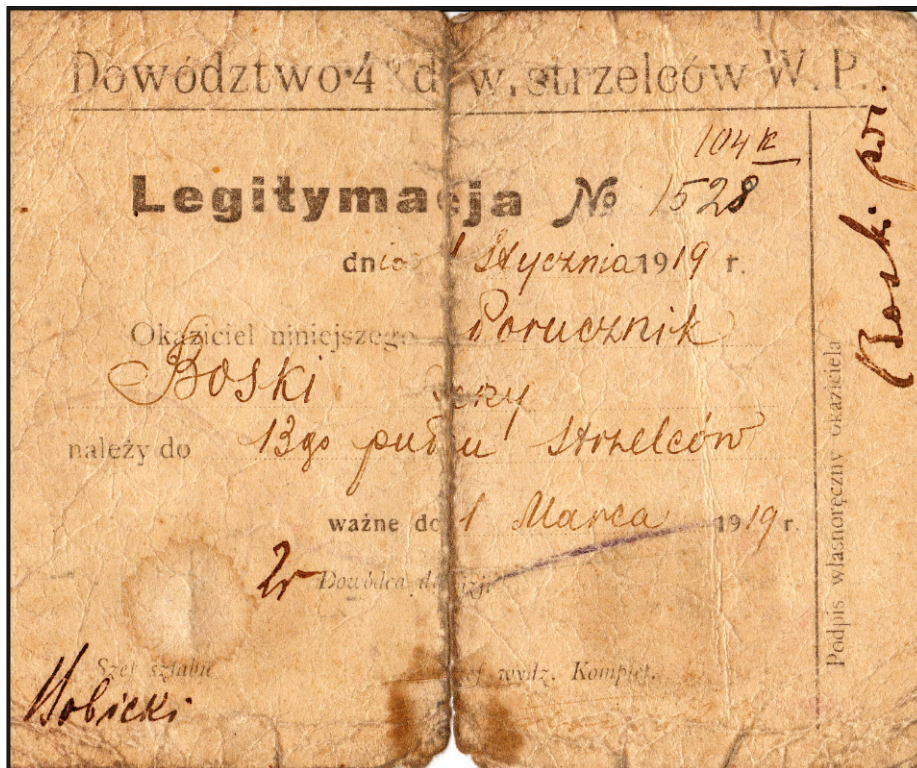 Dowództwo 4 dyw. strzelców W. P.
104 k
Legitymacja № 1528
dnia 1 Stycznia 1919 r.
Okaziciel niniejszego Porucznik
Boski
należy do 13go pułku strzelców
ważne do 1 Marca 1919 r.
Dowódca dywizji
Szef sztabu
Szef wydz. Komplet.
Podpis własnoręczny okaziciela
Boski por.